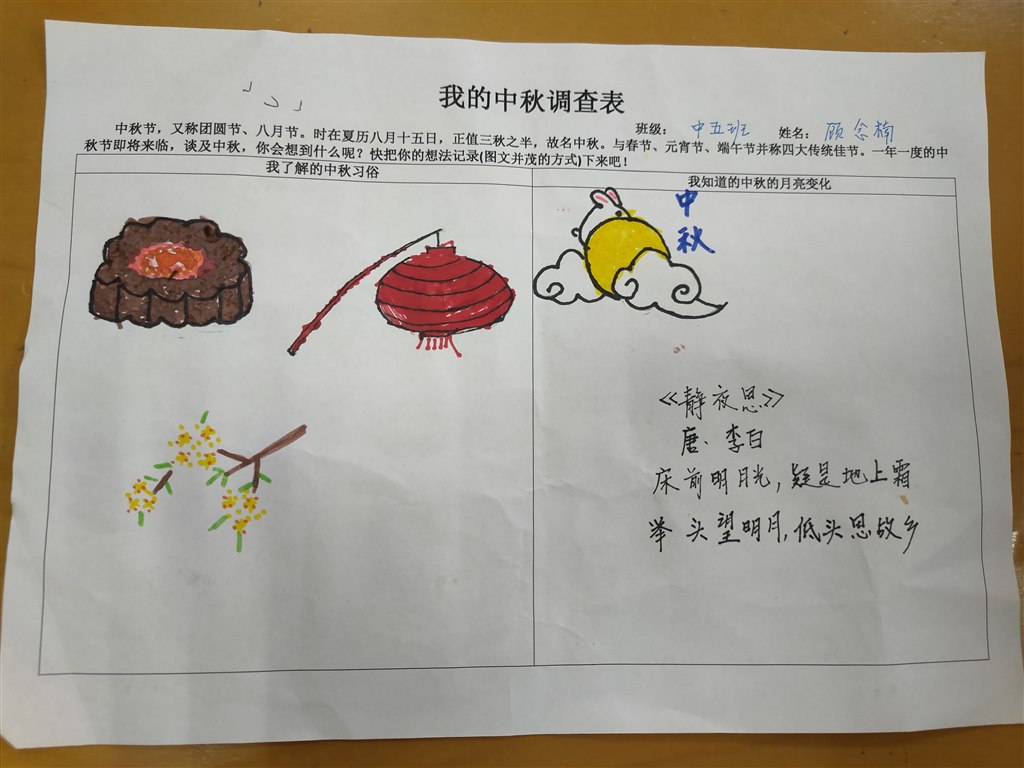 我的中秋调查表
班级： 中五班 姓名： 顾念楠
中秋节，又称团圆节、八月节。时在夏历八月十五日，正值三秋之半，故名中秋。与春节、元宵节、端午节并称四大传统佳节。一年一度的中
秋节即将来临，谈及中秋，你会想到什么呢？快把你的想法记录(图文并茂的方式)下来吧！
我了解的中秋习俗
我知道的中秋的月亮变化
中
秋
《静夜思》
唐·李白
床前明月光，疑是地上霜
举头望明月，低头思故乡